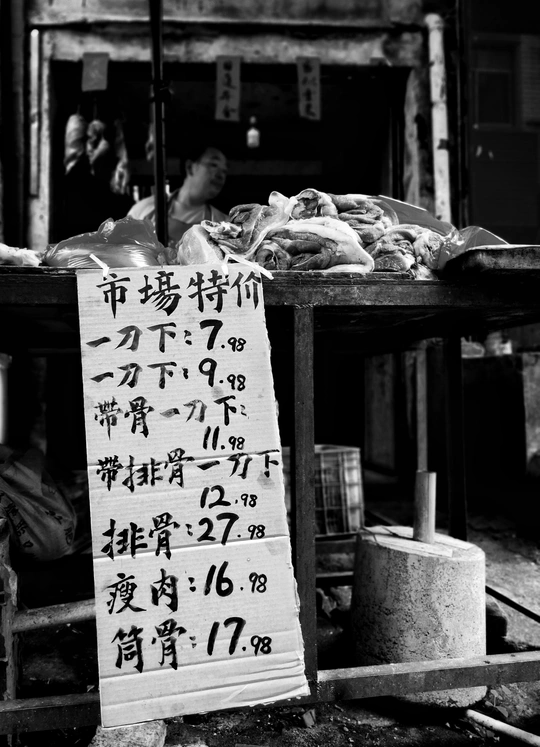 市場特价
一刀下:7.98
一刀下:9.98
帶骨一刀下:
11.98
帶排骨一刀下
12.98
排骨:27.98
瘦肉:16.98
筒骨:17.98